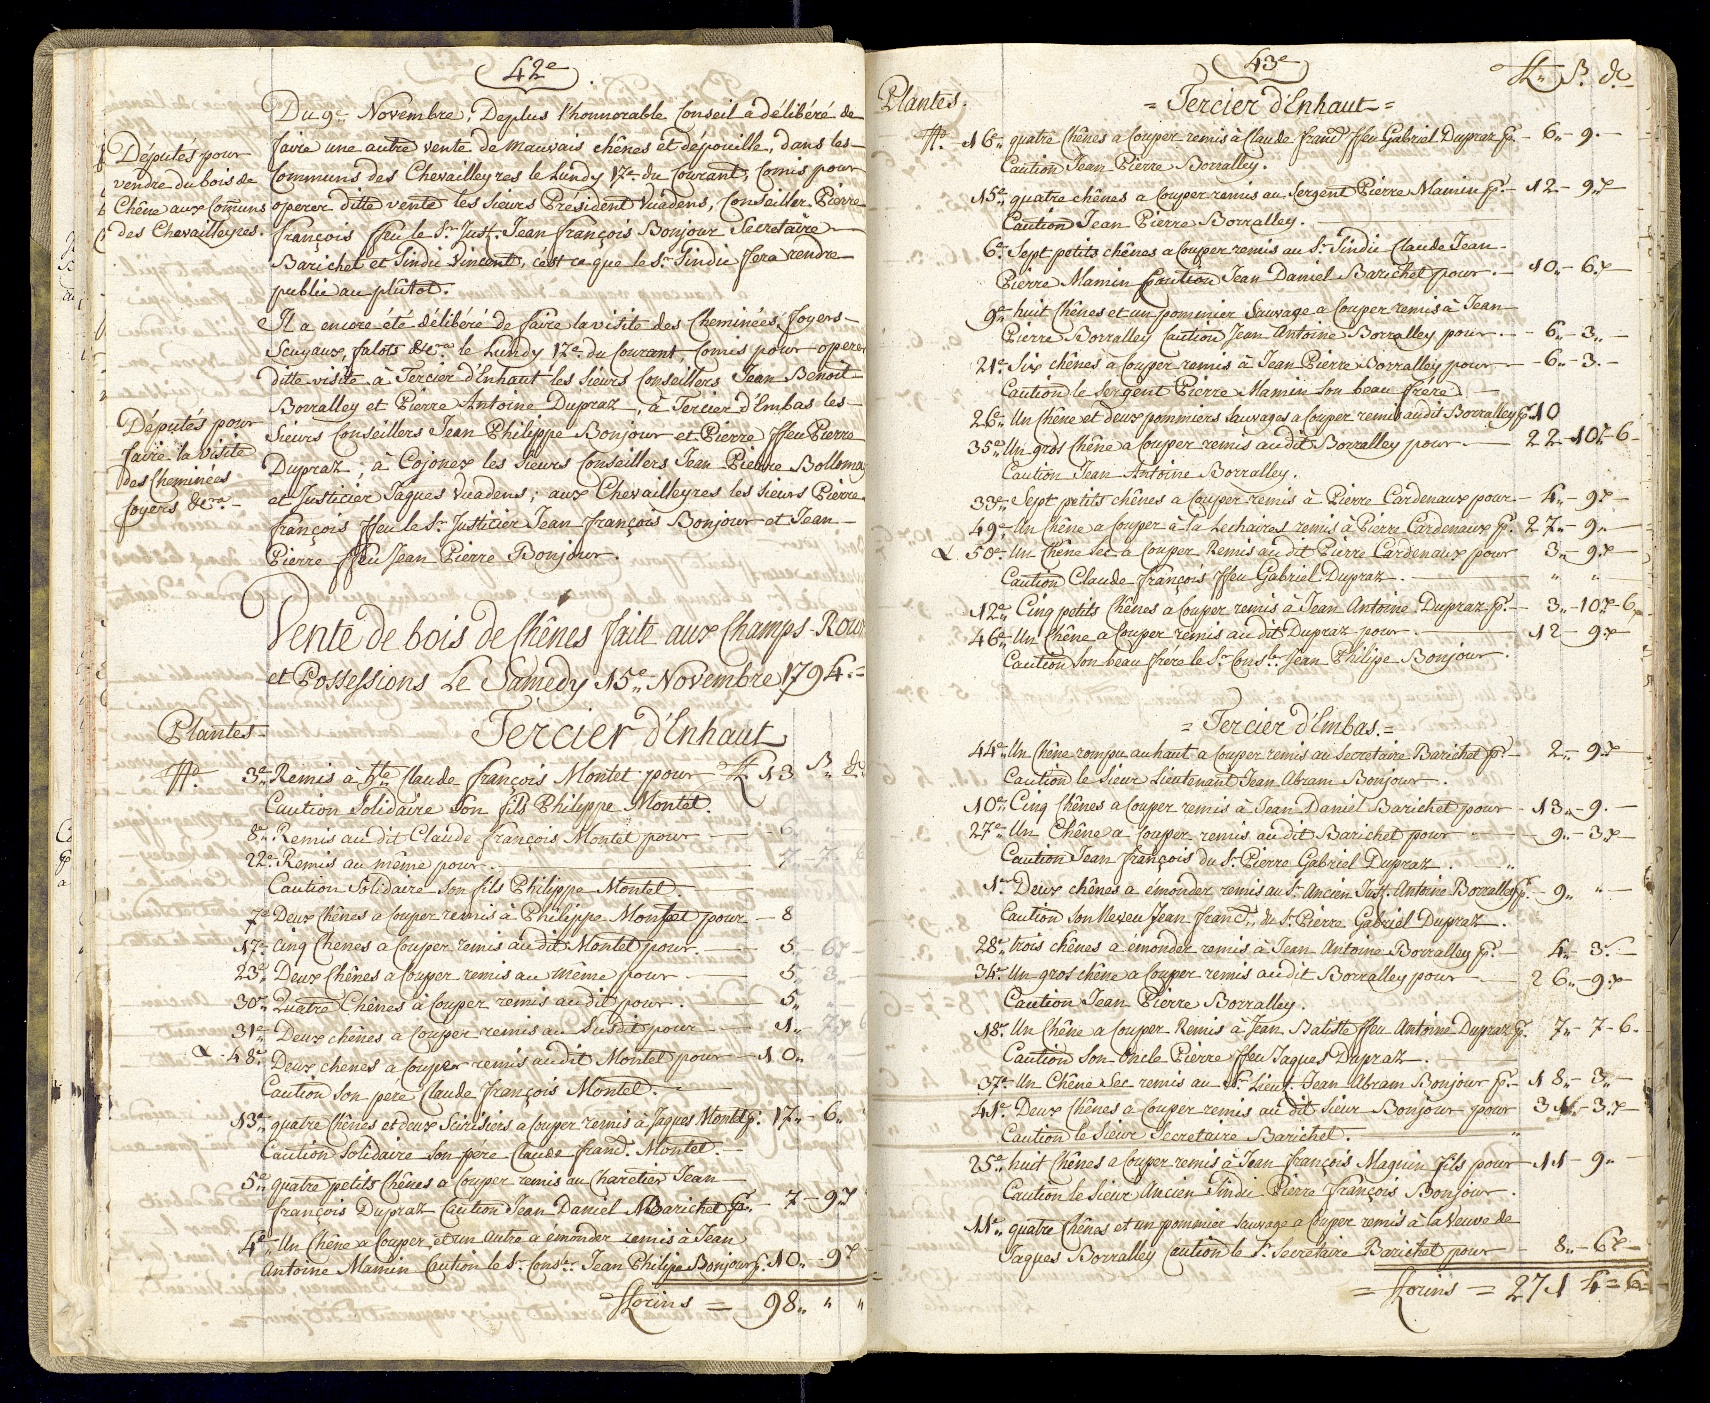 42e
Du 9e. Novembre. Deplus l'honnorable Conseil a délibéré de
faire une autre vente de mauvais chênes et dépouille, dans les
Communs des Chevailleyres le Lundy 17e. du Courant, Comis pour
operer ditte vente les Sieurs Président Vuadens, Conseiller Pierre
françois ffeu le Sr. Just. Jean françois Bonjour Secretaire
Barichet et Sindic Vincent, c'est ce que le Sr. Sindic fera rendre
public au plûtot.
Députés pour
vendre du bois de
Chêne aux Comũns
des Chevailleyres.
Il a encore été délibéré de faire la visite des Cheminées, foyers
Scuyaux, falots &cra. le Lundy 17e. du Courant, Comis pour operer
ditte visite à Tercier d'Enhaut les Sieurs Conseillers Jean Benoit
Borralley et Pierre Antoine Dupraz, à Tercier d'Embas les
Sieurs Conseillers Jean Philippe Bonjour et Pierre ffeu Pierre
Dupraz; à Cojonex les Sieurs Conseillers Jean Pierre Bolloma
et Justicier Jaques Vuadens; aux Chevailleyres les Sieurs Pierre
françois ffeu le Sr. Justicier Jean françois Bonjour et Jean
Pierre ffeu Jean Pierre Bonjour.
Députés pour
faire la visite
des Cheminées
foyers &cra.
Vente de bois de Chênes faite aux Champs-Roux
et Possessions Le Samedy 15e. Novembre 1794.=
Plantes Tercier d'Enhaut
No. 3e. Remis à hte. Claude françois Montet pour ff 13 ß. d.
Caution Solidaire Son fils Philippe Montet
8e. Remis au dit Claude françois Montet pour 6
22e. Remis au même pour 7
Caution Solidaire Son fils Philippe Montet
7e. Deux Chênes a Couper remis à Philippe Montet pour 8
17e. Cinq Chenes a Couper remis au dit Montet pour 5 6
23e. Deux Chênes a Couper remis au même pour 5 3
30e. Quatre Chênes à Couper remis au dit pour 5
31e. Deux chênes a Couper remis au Susdit pour 1
48e. Deux chenes a Couper remis au dit Montet pour 10
Caution Son pere Claude françois Montet.
13e. quatre Chênes et deux Seirisiers a Couper remis à Jaques Montet p. 17 6
Caution Solidaire Son pére Claude franc̃. Montet.
5e. quatre petits Chênes a Couper remis au Charetier Jean
françois Dupraz Caution Jean Daniel Barichet pr. 7 9
4e. Un Chêne a Couper et un autre a émonder remis à Jean
Antoine Mamin Caution le Sr. Consler. Jean Philipe Bonjour p. 10 9
fflorins = 98 " "
43e
ff. ß. d.
Plantes = Tercier d'Enhaut =
No. 16e. quatre Chênes a Couper remis à Claude franc̃. ffeu Gabriel Dupraz p. 6 9
Caution Jean Pierre Borralley.
15e. quatre chênes a Couper remis au Sergent Pierre Mamin p. 12 9
Caution Jean Pierre Borralley.
6e. Sept petits chênes a Couper remis au Sr. Sindic Claude Jean
Pierre Mamin Caution Jean Daniel Barichet pour 10 6
9e. huit Chênes et un pommier Sauvage a Couper remis à Jean
Pierre Borralley Caution Jean Antoine Borralley pour 6 3
21e. Six chênes a Couper remis à Jean Pierre Borralley pour 6 3
Caution le Sergent Pierre Mamin Son beau frére
26e. Un Chêne et deux pommiers Sauvages a Couper remis au dit Borralley p. 10
35e. Un gros Chêne a Couper remis au dit Borralley pour 22 10 6
Caution Jean Antoine Borralley.
33e. Sept petits chênes a Couper remis à Pierre Cardenaux pour 4 9
49e. Un Chêne a Couper à la Lechaires remis à Pierre Cardenaux p. 27 9
50e. Un Chêne Sec a Couper Remis au dit Pierre Cardenaux pour 3 9
Caution Claude françois ffeu Gabriel Dupraz. " "
12e. Cinq petits Chênes a Couper remis à Jean Antoine Dupraz p. 3 10 6
46e. Un Chêne a Couper remis au dit Dupraz pour 12 9
Caution Son beau frére le Sr. Consler. Jean Philipe Bonjour.
= Tercier d'Embas. =
44e. Un Chêne rompu au haut a Couper remis au Secretaire Barichet p. 2 9
Caution le Sieur Lieutenant Jean Abram Bonjour.
10e. Cinq Chênes a Couper remis à Jean Daniel Barichet pour 13 9
27e. Un Chêne a Couper remis au dit Barichet pour 9 3
Caution Jean françois du Sr. Pierre Gabriel Dupraz.
1e. Deux chênes a émonder remis au Sr. Ancien Just. Antoine Borralley p. 9 "
Caution Son Neveu Jean franc̃. du Sr. Pierre Gabriel Dupraz.
28e. trois chênes a émonder remis à Jean Antoine Borralley p. 4 3
34e. Un gros chêne a Couper remis au dit Borralley pour 26 9
Caution Jean Pierre Borralley.
18e. Un Chêne a Couper Remis à Jean Batiste ffeu Antoine Dupraz p. 7 7 6
Caution Son Oncle Pierre ffeu Jaques Dupraz.
37e. Un Chêne Sec remis au Sr. Lieut. Jean Abram Bonjour p. 18 3
41e. Deux Chênes a Couper remis au dit Sieur Bonjour pour 31 3
Caution le Sieur Secretaire Barichet.
25e. huit Chênes a Couper remis à Jean françois Maguin fils pour 11 9
Caution le Sieur Ancien Sindic Pierre françois Bonjour.
11e. quatre Chênes et un pommier Sauvage a Couper remis à la Veuve de
Jaques Borralley Caution le Sr. Secretaire Barichet pour 8 6
= fflorins = 271 4 = 6